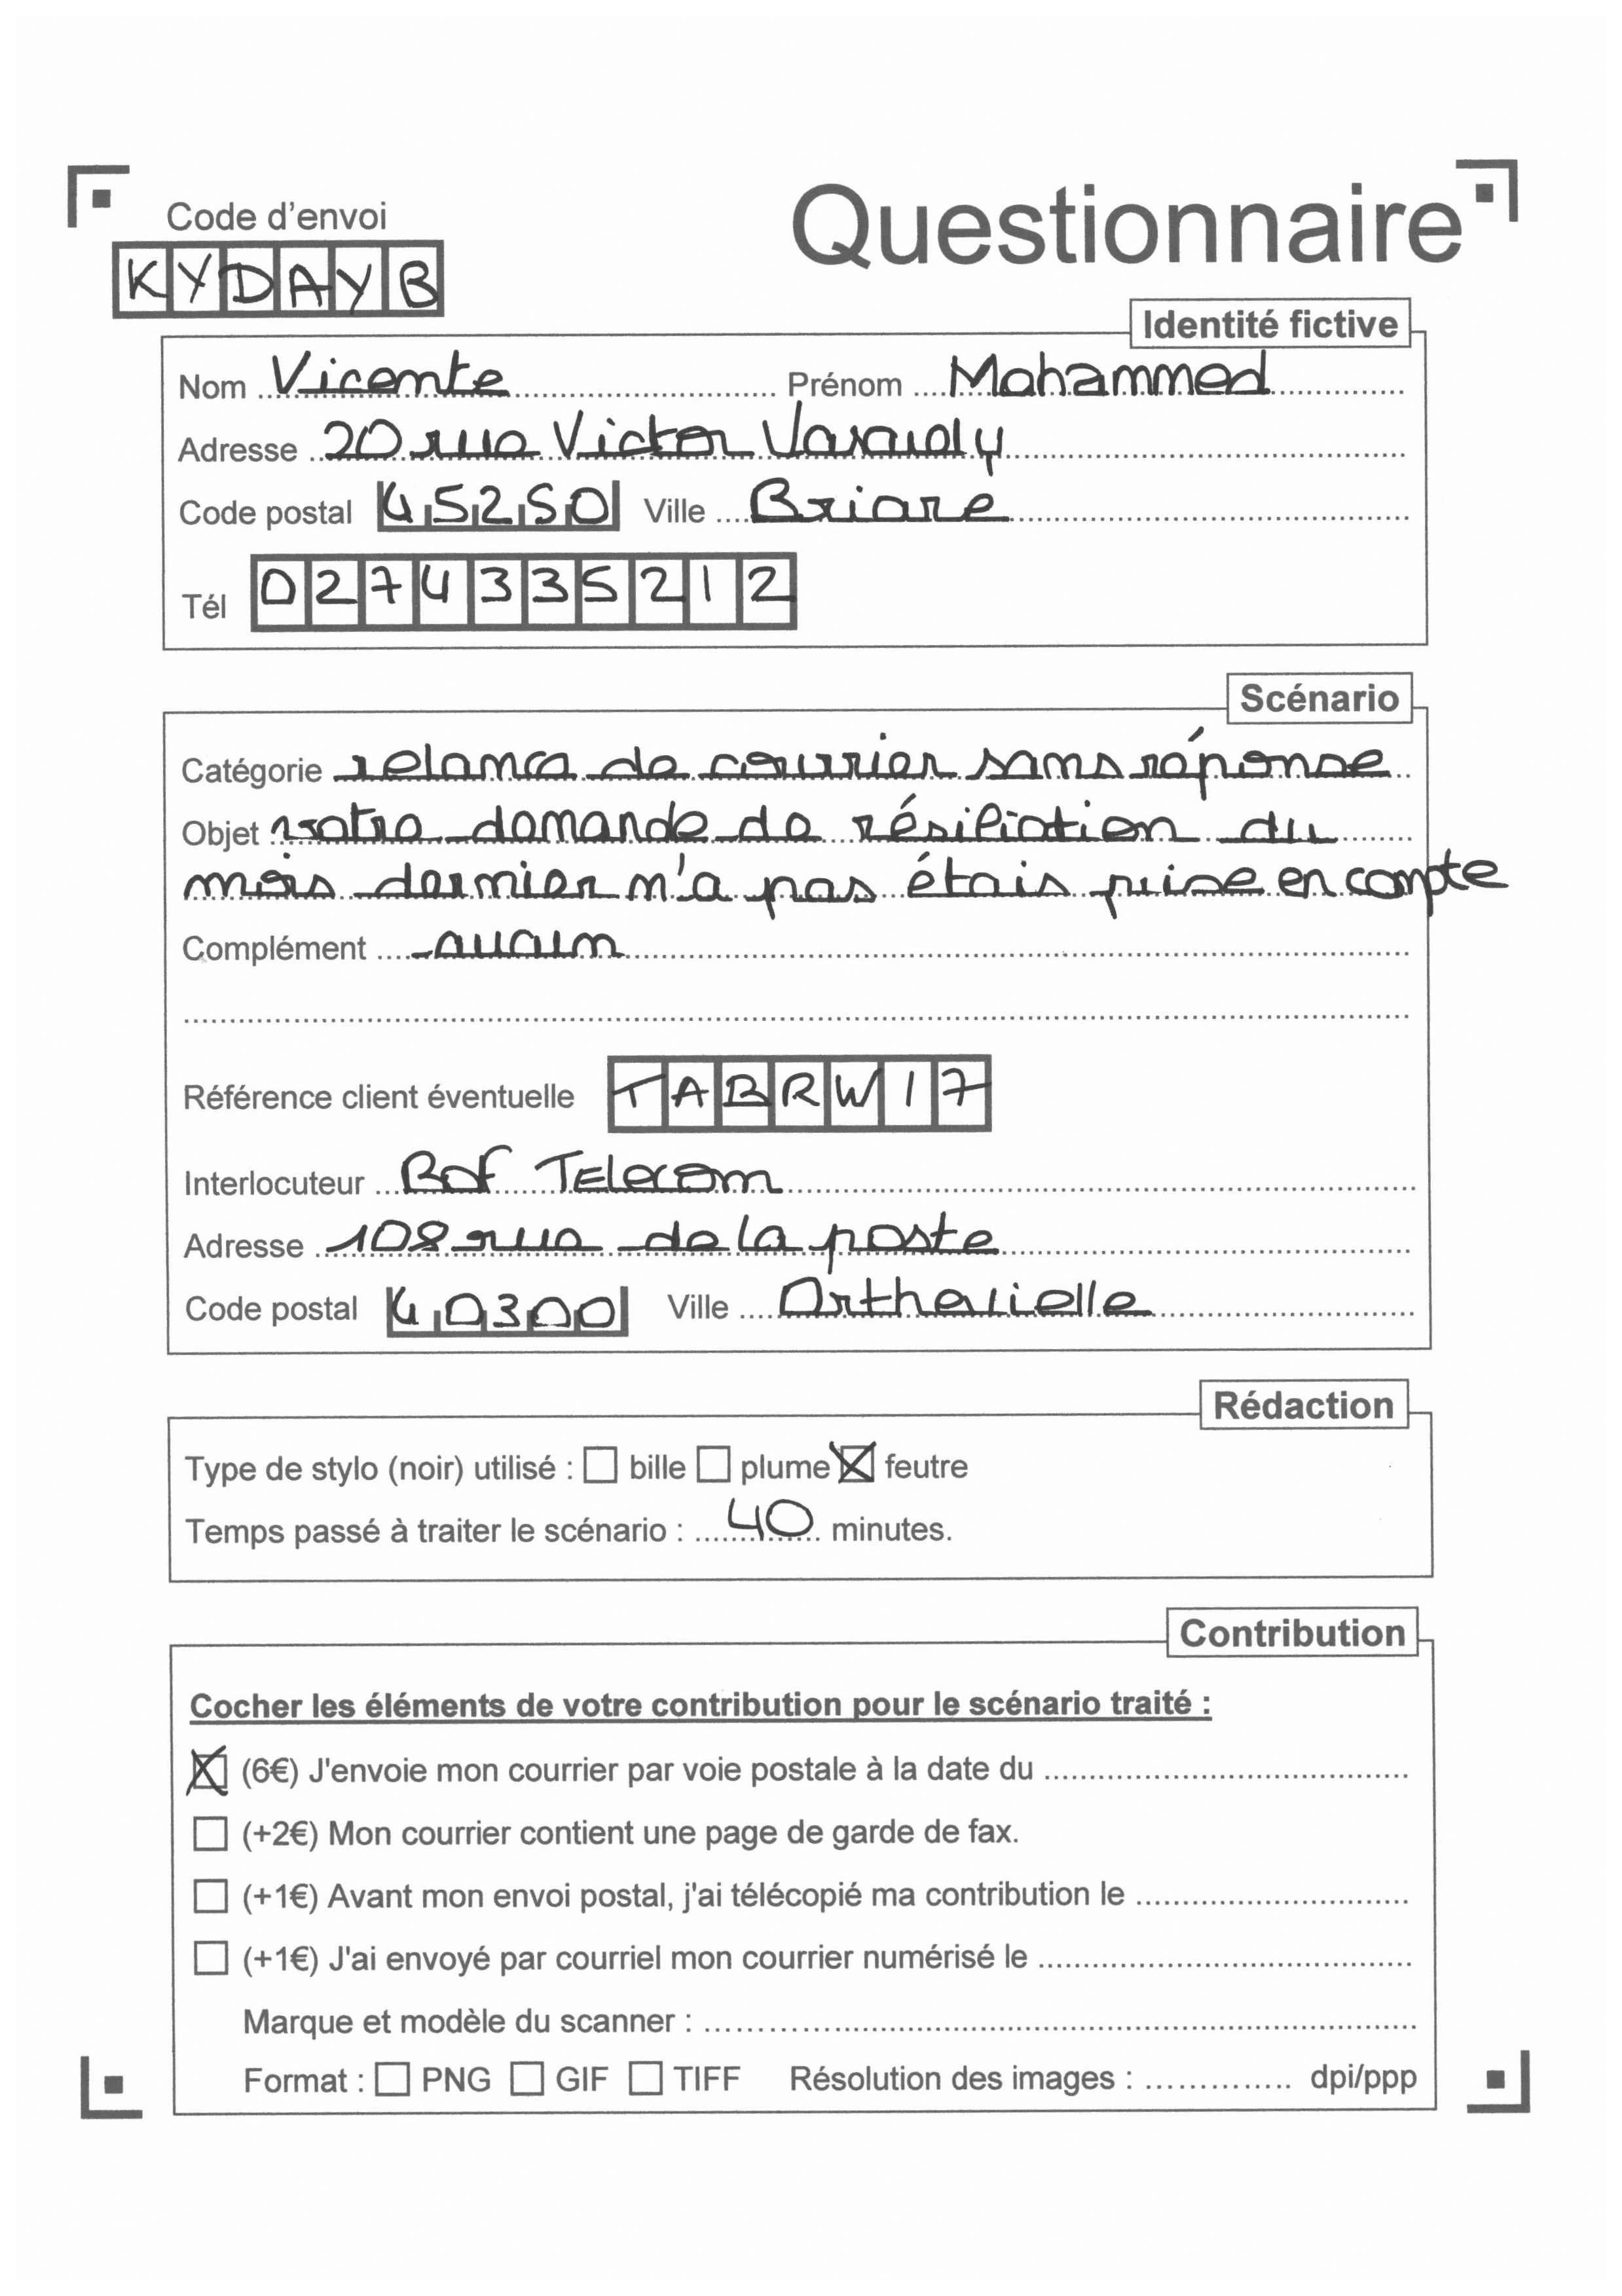 Code d'envoi
Questionnaire
KYDAYB
Identité fictive
Nom Vicente Prénom Mohammed
Adresse 20 rue Victor Vasarely
Code postal 45250 Ville Briare
Tél 0274335212
Scénario
Catégorie relance de courrier sans réponse
Objet votre demande de résiliation du
mois dernier n'a pas étais prise en compte
Complément aucun
Référence client éventuelle TABRW17
Interlocuteur Bof TElecom
Adresse 108 rue de la poste
Code postal 40300 Ville Orthevielle
Rédaction
Type de stylo (noir) utilisé : bille plume feutre
Temps passé à traiter le scénario : 40 minutes.
Contribution
Cocher les éléments de votre contribution pour le scénario traité :
(6€) J'envoie mon courrier par voie postale à la date du
(+2€) Mon courrier contient une page de garde de fax.
(+1€) Avant mon envoi postal, j'ai télécopié ma contribution le
(+1€) J'ai envoyé par courriel mon courrier numérisé le
Marque et modèle du scanner :
Format : PNG GIF TIFF Résolution des images : dpi/ppp